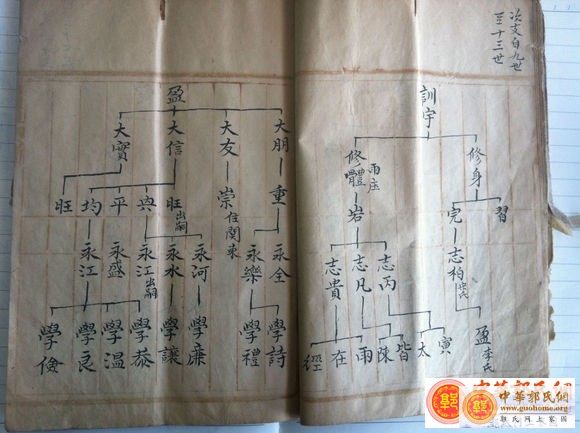 次支自九世
至十三世
訓宇
修身
修體 雨庄
習
完
岩
志柏
志丙
志凡
志貴
盈 李氏
寅
太
皆
陳
雨
在
經
盈
大朋
大友
大信
大實
重
崇 住関東
旺 出嗣
典
平
均
旺
永全
永樂
永河
永水
永江 出嗣
永盛
永江
學詩
學禮
學廉
學讓
學恭
學温
學良
學儉
中華郭氏網
www.guohome.org
郭氏網上家園